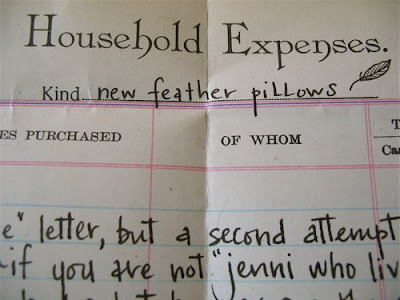 Household Expenses.
Kind new feather pillows
ES PURCHASED OF WHOM T
Ca
e" letter, but a second attempt
if you are not "jenni who liv